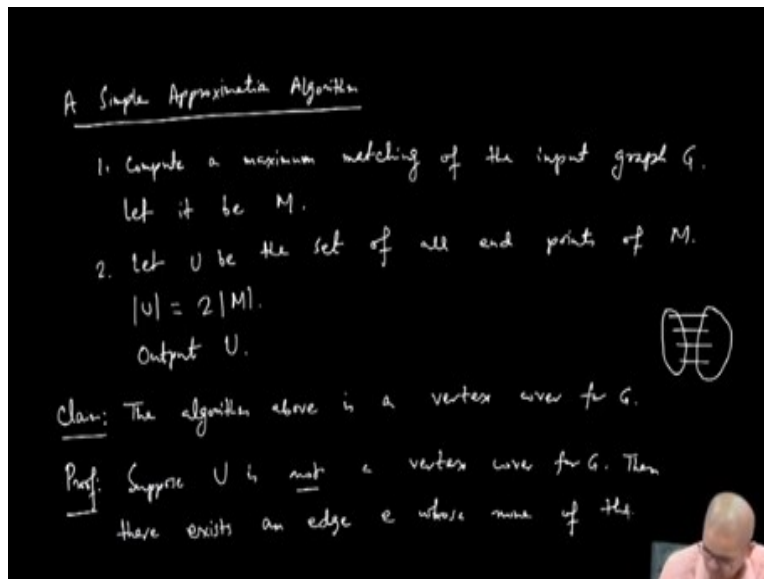 A Simple Approximation Algorithm
1. Compute a maximum matching of the input graph G.
Let it be M.
2. Let U be the set of all end points of M.
|U| = 2|M|.
Output U.
Claim: The algorithm above is a vertex cover for G.
Proof: Suppose U is not a vertex cover for G. Then
there exists an edge e whose none of the